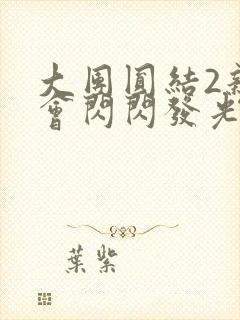 大團圓結2新
會閃閃發光
葉紫